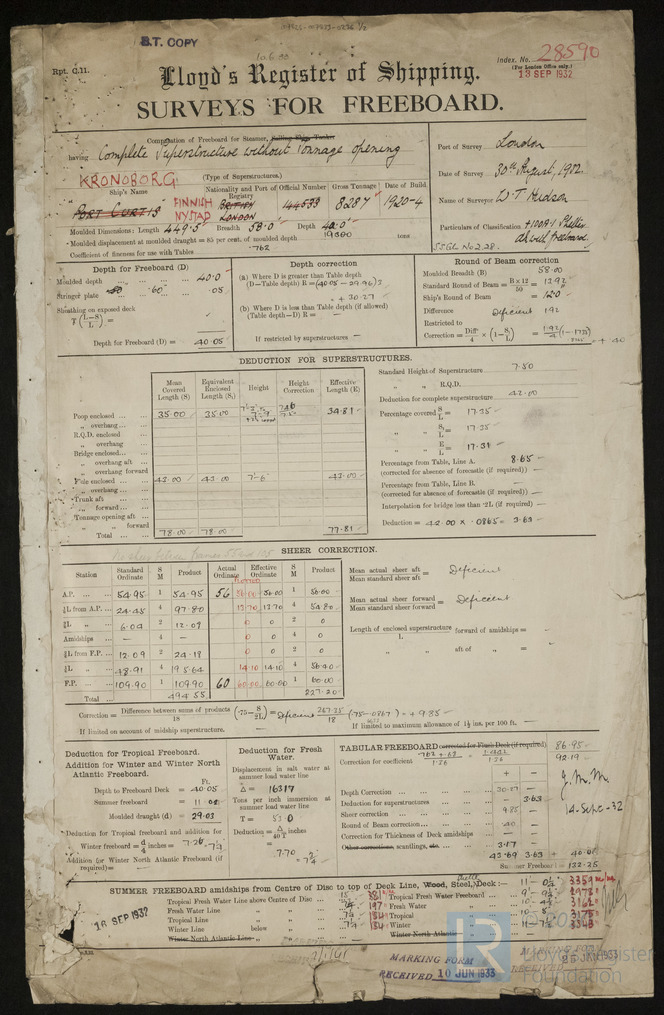 B.T. COPY
Rpt. C.11.
Index. No. 28590
(For London Office only.)
13 SEP 1932
Lloyd's Register of Shipping.
SURVEYS FOR FREEBOARD.
Computation of Freeboard for Steamer,
having Complete Superstructure without Tonnage opening
(Type of Superstructures.)
Port of Survey London
Date of Survey 30th August, 1932
Name of Surveyor W.T. Hudson
Particulars of Classification +100A1 Shelter
dk with freeboard
KRONOBORG
Ship's Name
PORT CURTIS
Nationality and Port of Registry
FINNISH BRITISH
NYSTAD LONDON
Official Number
144533
Gross Tonnage
8287
Date of Build
1920-4
Moulded Dimensions: Length 449.5 Breadth 58.0 Depth 40.0
Moulded displacement at moulded draught = 85 per cent. of moulded depth 19300 tons
Coefficient of fineness for use with Tables .762
Depth for Freeboard (D)
Moulded depth 40.0
Stringer plate .60 .05
Sheathing on exposed deck
T(L-S/L) =
Depth for Freeboard (D) = 40.05
Depth correction
(a) Where D is greater than Table depth
(D—Table depth) R = (40.05 - 29.96) 3
= + 30.27
(b) Where D is less than Table depth (if allowed)
(Table depth—D) R = —
If restricted by superstructures —
Round of Beam correction
Moulded Breadth (B) 58.00
Standard Round of Beam = B×12/50 = 13.92
Ship's Round of Beam = 12.0
Difference Deficient 1.92
Restricted to
Correction = Diff./4 × (1 - S₁/L) = 1.92/4 (1 - ) = + .40
DEDUCTION FOR SUPERSTRUCTURES.
Mean Covered Length (S)
Equivalent Enclosed Length (S₁)
Height
Height Correction
Effective Length (E)
Poop enclosed 35.00 35.00 34.81
„ overhang
R.Q.D. enclosed
„ overhang
Bridge enclosed
„ overhang aft
„ overhang forward
F'cle enclosed 43.00 43.00 7'-6" 43.00
„ overhang
Trunk aft
„ forward
Tonnage opening aft
„ „ forward
Total 78.00 78.00 77.81
Standard Height of Superstructure 7.50
„ „ R.Q.D.
Deduction for complete superstructure 42.00
Percentage covered S/L = 17.35
„ „ S₁/L = 17.35
„ „ E/L = 17.31
Percentage from Table, Line A. 8.65
(corrected for absence of forecastle (if required)) —
Percentage from Table, Line B. —
(corrected for absence of forecastle (if required)) —
Interpolation for bridge less than ·2L (if required) —
Deduction = 42.00 × .0865 = 3.63
SHEER CORRECTION.
Station
Standard Ordinate
S M
Product
Actual Ordinate
Effective Ordinate
S M
Product
A.P. 54.95 1 54.95 56 56.00 56.00 1 56.00
⅙L from A.P. 24.45 4 97.80 13.70 13.70 4 54.80
⅓L „ 6.04 2 12.09 0 0 2 0
Amidships — 4 — 0 0 4 0
⅓L from F.P. 12.09 2 24.18 0 0 2 0
⅙L „ 48.91 4 195.64 14.10 14.10 4 56.40
F.P. 109.90 1 109.90 60 60.00 60.00 1 60.00
Total 494.55 227.20
Mean actual sheer aft / Mean standard sheer aft = Deficient
Mean actual sheer forward / Mean standard sheer forward = Deficient
Length of enclosed superstructure forward of amidships = —
L
„ aft of „ = —
Correction = Difference between sums of products / 18 (·75 - S/2L) = Deficient 267.35/18 (.75-.0867) = + 9.85
If limited on account of midship superstructure. —
If limited to maximum allowance of 1½ ins. per 100 ft. —
Deduction for Tropical Freeboard.
Addition for Winter and Winter North Atlantic Freeboard.
Ft.
Depth to Freeboard Deck = 40.05
Summer freeboard = 11.02
Moulded draught (d) = 29.03
Deduction for Tropical freeboard and addition for
Winter freeboard = d/4 inches = 7.26 = 7¼
Addition for Winter North Atlantic Freeboard (if required) = —
Deduction for Fresh Water.
Displacement in salt water at summer load water line
Δ = 16317
Tons per inch immersion at summer load water line
T = 53.0
Deduction = Δ/40T inches
= 7.70 = 7¾
TABULAR FREEBOARD corrected for Flush Deck (if required) 86.95
Correction for coefficient .762 + .68 / 1.36 = 1.442/1.36 92.19
+ —
Depth Correction 30.27
Deduction for superstructures 3.63
Sheer correction 9.85
Round of Beam correction .40
Correction for Thickness of Deck amidships —
Other corrections, scantlings, etc. 3.17
43.69 3.63 + 40.06
Summer Freeboard = 132.25
J.M.M.
14-Sept-32
SUMMER FREEBOARD amidships from Centre of Disc to top of Deck Line, Wood, Steel, Deck :— 11 - 0¼
Tropical Fresh Water Line above Centre of Disc
Fresh Water Line „ „
Tropical Line „ „
Winter Line below „ „
Winter North Atlantic Line „ „
Tropical Fresh Water Freeboard
Fresh Water „
Tropical „
Winter „
Winter North Atlantic „
16 SEP 1932
MARKING FORM
RECEIVED 10 JUN 1933
MARKING FORM
RECEIVED
Lloyd's Register
Foundation